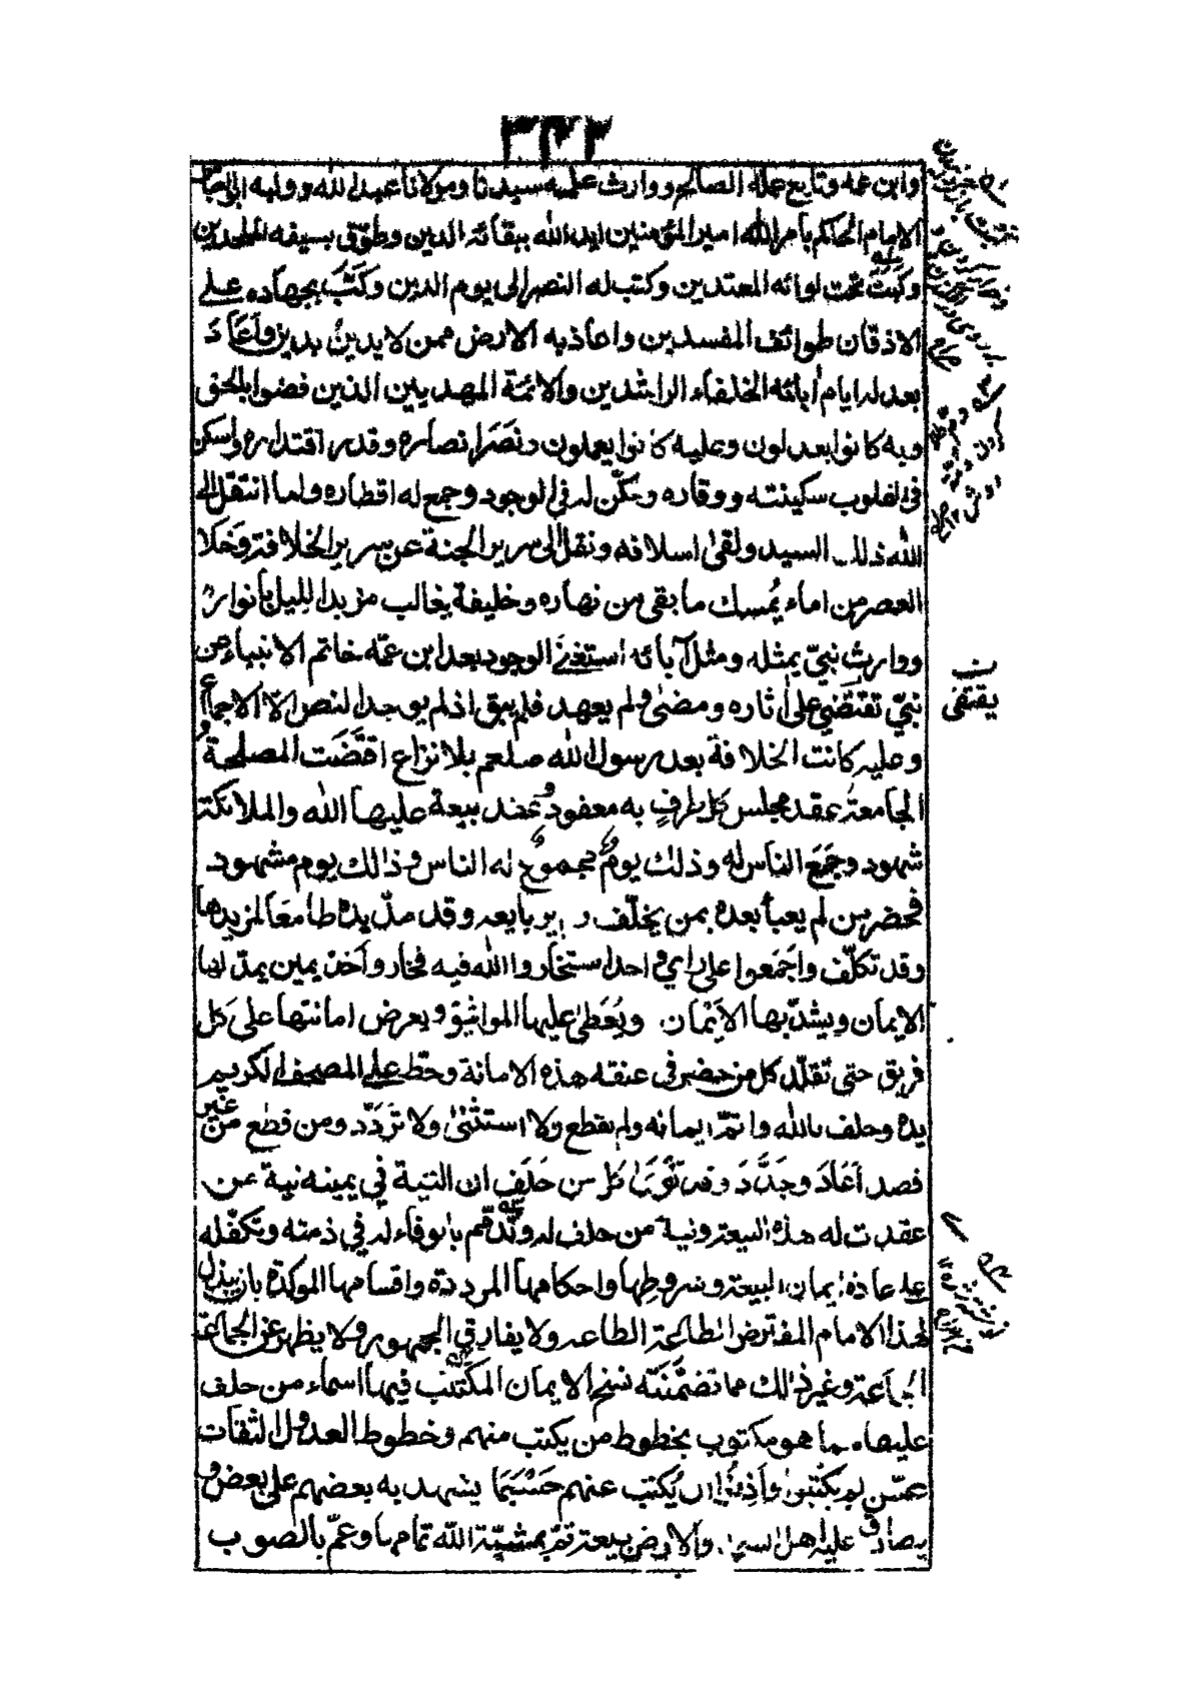 ٣٤٢
وابن عمه وتابع عمله الصالح ووارث علمه سيدنا ومولانا عبد الله ووليه ابي العباس
الامام الحاكم بامر الله امير المؤمنين ايد الله ببقائه الدين وطوّق بسيفه الملحدين
وكبت تحت لوائه المعتدين وكتب له النصر الى يوم الدين وكَبَّ بجهاده على
الاذقان طوائف المفسدين واعاذ به الارض ممن لا يدين بدين واَعَادَ
بعدله ايام اٰبائه الخلفاء الراشدين والائمة المهديين الذين قضوا بالحق
وبه كانوا يعدلون وعليه كانوا يعملون ونَصَرَ انصاره وقدر اقتداره واسكن
فى القلوب سكينته ووقاره ومكّن له في الوجود وجمع له اقطاره ولما انتقل الى
الله ذلك السيد ولقى اسلافه ونقل الى سرير الجنة عن سرير الخلافة وخَلا
العصر من امام يُمسك ما بقى من نهاره وخليفة يغالب مزبد الليل بانواره
ووارث نبيّ بمثله ومثل آبائه استغنى الوجود بعد ابن عمّه خاتم الانبياء عن
نبيّ تقتضي على اثاره ومضى ولم يعهد فلم يبق اذ لم يوجد النص الا الاجماع
يقتفى
وعليه كانت الخلافة بعد رسول الله صلعم بلا نزاع اقتضَت المصلحة
الجامعة عقد مجلس كل طرفٍ به معقود وعقد بيعة عليها الله والملائكة
شهود وجُمِعَ الناس له وذلك يومٌ مجموعٌ له الناس وذالك يوم مشهود
فحضر من لم يعبأ بعده بمن تخلّف ولم ير بايعه وقد مدّ يده طامعَا لمزيدها
وقد تكلّف واجمَعوا على راي واحد استخاروا الله فيه فخار واَخذ يمين يمدّ لها
الايمان ويشدّ بها الاَيْمان ويُعْطى عليها المواثيق ويعرض امانتها على كل
فريق حتى تقلّد كل من حضر في عنقه هذه الامانة وحَطّ على المصحف الكريم
يده وحلف بالله واتمّ ايمانه ولم يقطع ولا استثنىٰ ولا تَرَدّد ومن قطع من غير
قصد اَعَادَ وجَدَّدَ وقد نَوىٰ كل من حَلَف ان النيّة في يمينه نية من
عقدت له هذه البيعة ونية من حلف له وتذمّم بالوفاء له في ذمته وتكفّله
على عادة ايمان البيعة وشروطها واحكامها المرددة واقسامها الموكدة بان يبذل
لهذا الامام المفترض الطاعة الطاعه ولا يفارق الجمهور ولا يظهر عن الجماعة
الجماعة وغير ذالك مما تضمَّنَته نسخ الايمان المكتتب فيها اسماء من حلف
عليها مما هو مكتوب بخطوط من يكتب منهم وخطوط العدول الثقات
عمّن لم يكتبوا واَذِنُوا ان يُكتب عنهم حَسْبَمَا يشهد به بعضهم على بعض و
يصادق عليه اهل السماء والارض بيعة تمّ بمشيّة الله تمامها وعمّ بالصوب